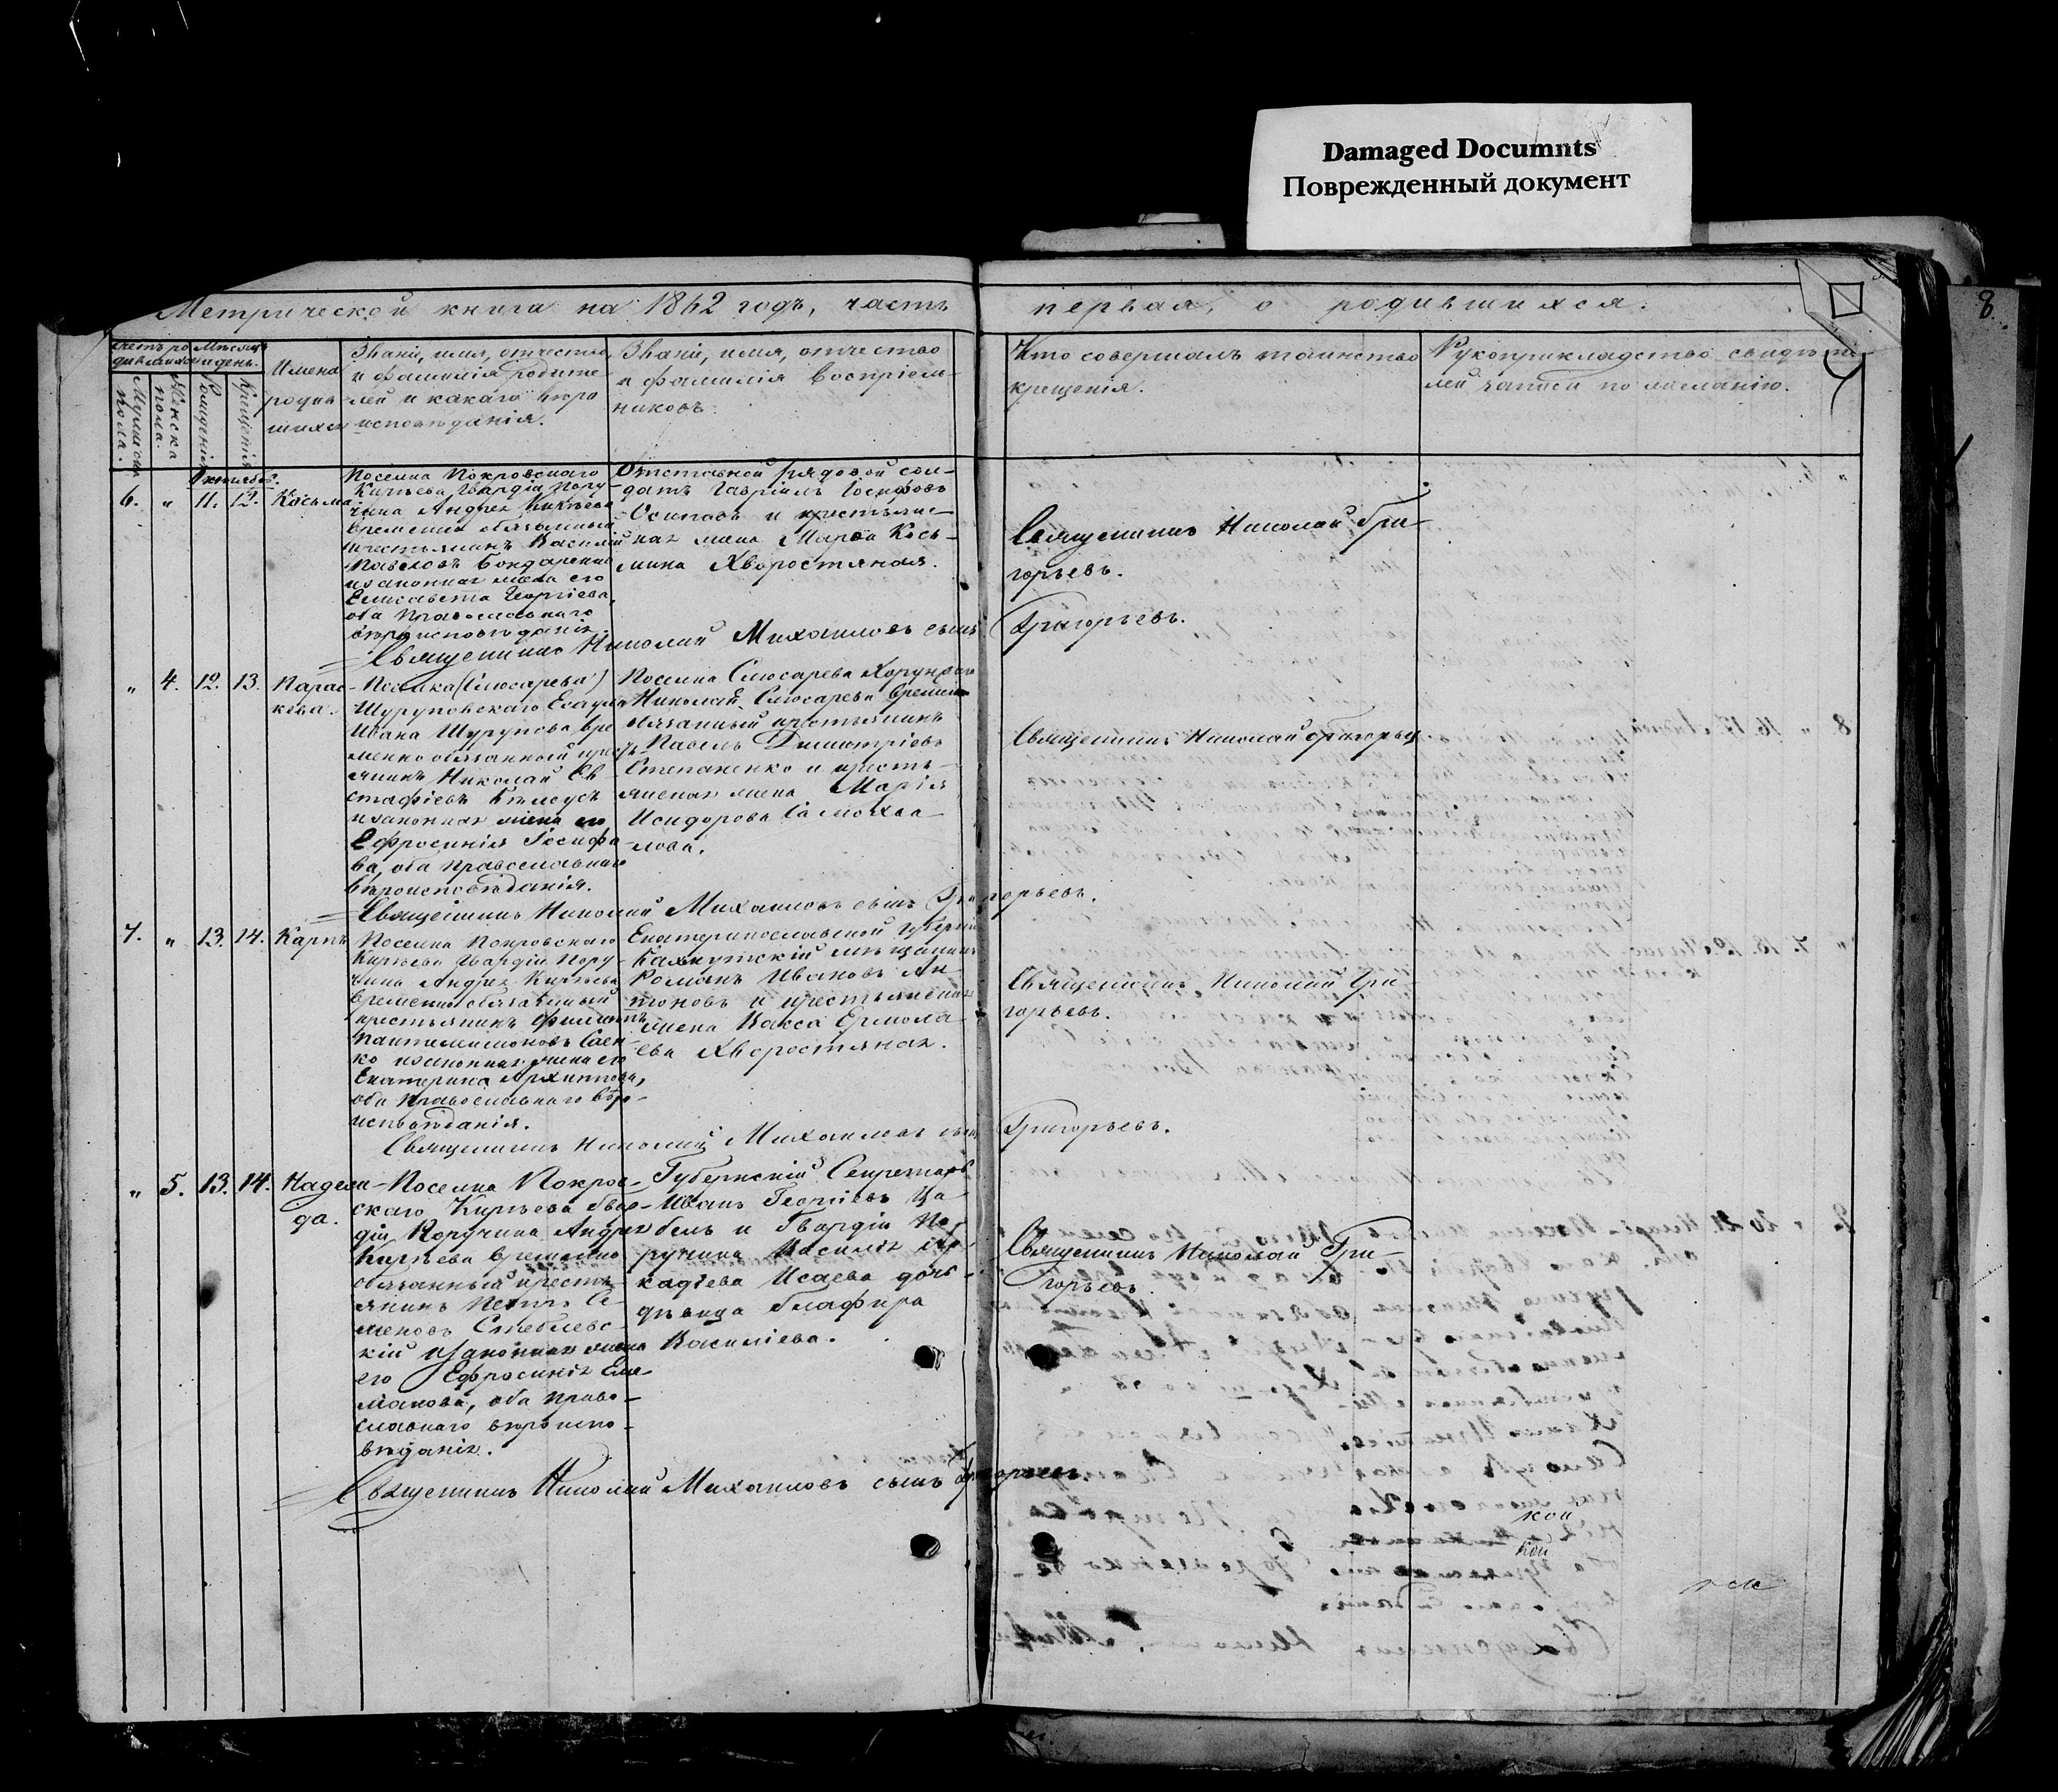 Damaged Documnts
Поврежденный документ
8.
Метрической книги на 1862 годъ, часть первая, о родившихся.
Счетъ ро
дившихся
Мѣсяцъ
и день.
Мужеска
пола.
Женска
пола.
Рожденія
Крещенія
Имена
родив
шихся
Званіе, имя, отчество,
и фамилія родите
лей и какаго вѣро
исповѣданія.
Званіе, имя, отчество
и фамилія воспріем-
никовъ.
Кто совершалъ таинство
крещенія.
Рукоприкладство свидѣте
лей записи по желанію.
Октябрь.
6. " 11. 12. Косьма
Поселка Покровскаго
Кирѣева Гвардіи Пору-
чика Андрея Кирѣева
временно обязанный
крестьянинъ Василій
Павловъ Бондаренко
и законная жена его
Елисавета Георгіева,
оба Православнаго
вѣроисповѣданія.
Отставной рядовой сол-
датъ Гавріилъ Іосифовъ
Осиповъ и крестьянс-
кая жена Марѳа Кось-
мина Хворостяная.
Священникъ Николай Гри-
горьевъ.
Священникъ Николай Михаиловъ сынъ Григорьевъ.
" 4. 12. 13. Парас-
кева.
Поселка (Слюсарева)
Шуруповскаго Есаула
Ивана Шурупова вре
менно обязанной крестъ
янинъ Николай Ев
стафіевъ
и законная жена его
Ефросинія Іосифо
ва, оба православнаго
вѣроисповѣданія.
Поселка Слюсарева Хорунжаго
Николая Слюсарева временно
обязанный крестьянинъ
Павелъ Димитріевъ
Степаненко и кресть-
янская жена Марія
Исидорова Самойха-
лова.
Священникъ Николай Григорьев
Священникъ Николай Михаиловъ сынъ Григорьевъ.
7. " 13. 14. Карпъ
Поселка Покровскаго
Кирѣева Гвардіи Пору-
чика Андрея Кирѣева
временно обязанный
крестьянинъ Филиппъ
Пантелимоновъ Саен-
ко и законная жена его
Екатерина Архиппова,
оба Православнаго вѣро-
исповѣданія.
Екатеринославской губерніи
Бахмутскій мѣщанинъ
Романъ Ивановъ Ан-
тоновъ и крестьянская
жена Васса Ермола-
ева Хворостяная.
Священникъ Николай Гри-
горьевъ.
Священникъ Николай Михаиловъ сынъ Григорьевъ.
" 5. 13. 14. Надеж-
да.
Поселка Покров-
скаго Кирѣева Гвар-
діи Поручика Андрея
Кирѣева временно
обязанный кресть-
янинъ Петръ Се-
меновъ Стеблевс-
кій и законная жена
его Ефросинія Еме-
льянова, оба право-
славнаго вѣроиспо-
вѣданія.
Губернскій Секретарь
Иванъ Георгіевъ Ца-
бель и Гвардіи По-
ручика Василія Ар-
кадіева Исаева дочь
дѣвица Глафира
Василіева.
Священникъ Николай Гри-
горьевъ.
Священникъ Николай Михаиловъ сынъ Григорьевъ.
кой
кой